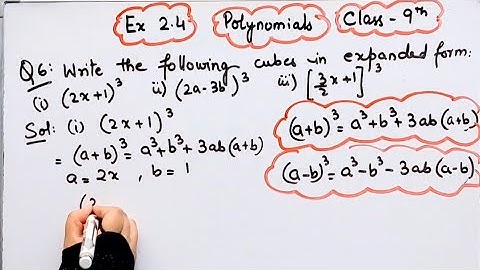 Ex 2.4 Polynomials Class - 9th
Q6: Write the following cubes in expanded form:
(i) (2x+1)³ ii) (2a-3b)³ iii) [3/2 x+1]³
Sol: (i) (2x+1)³
= (a+b)³ = a³+b³+3ab(a+b)
a = 2x , b = 1
(2
(a+b)³ = a³+b³+3ab(a+b)
(a-b)³ = a³-b³-3ab(a-b)